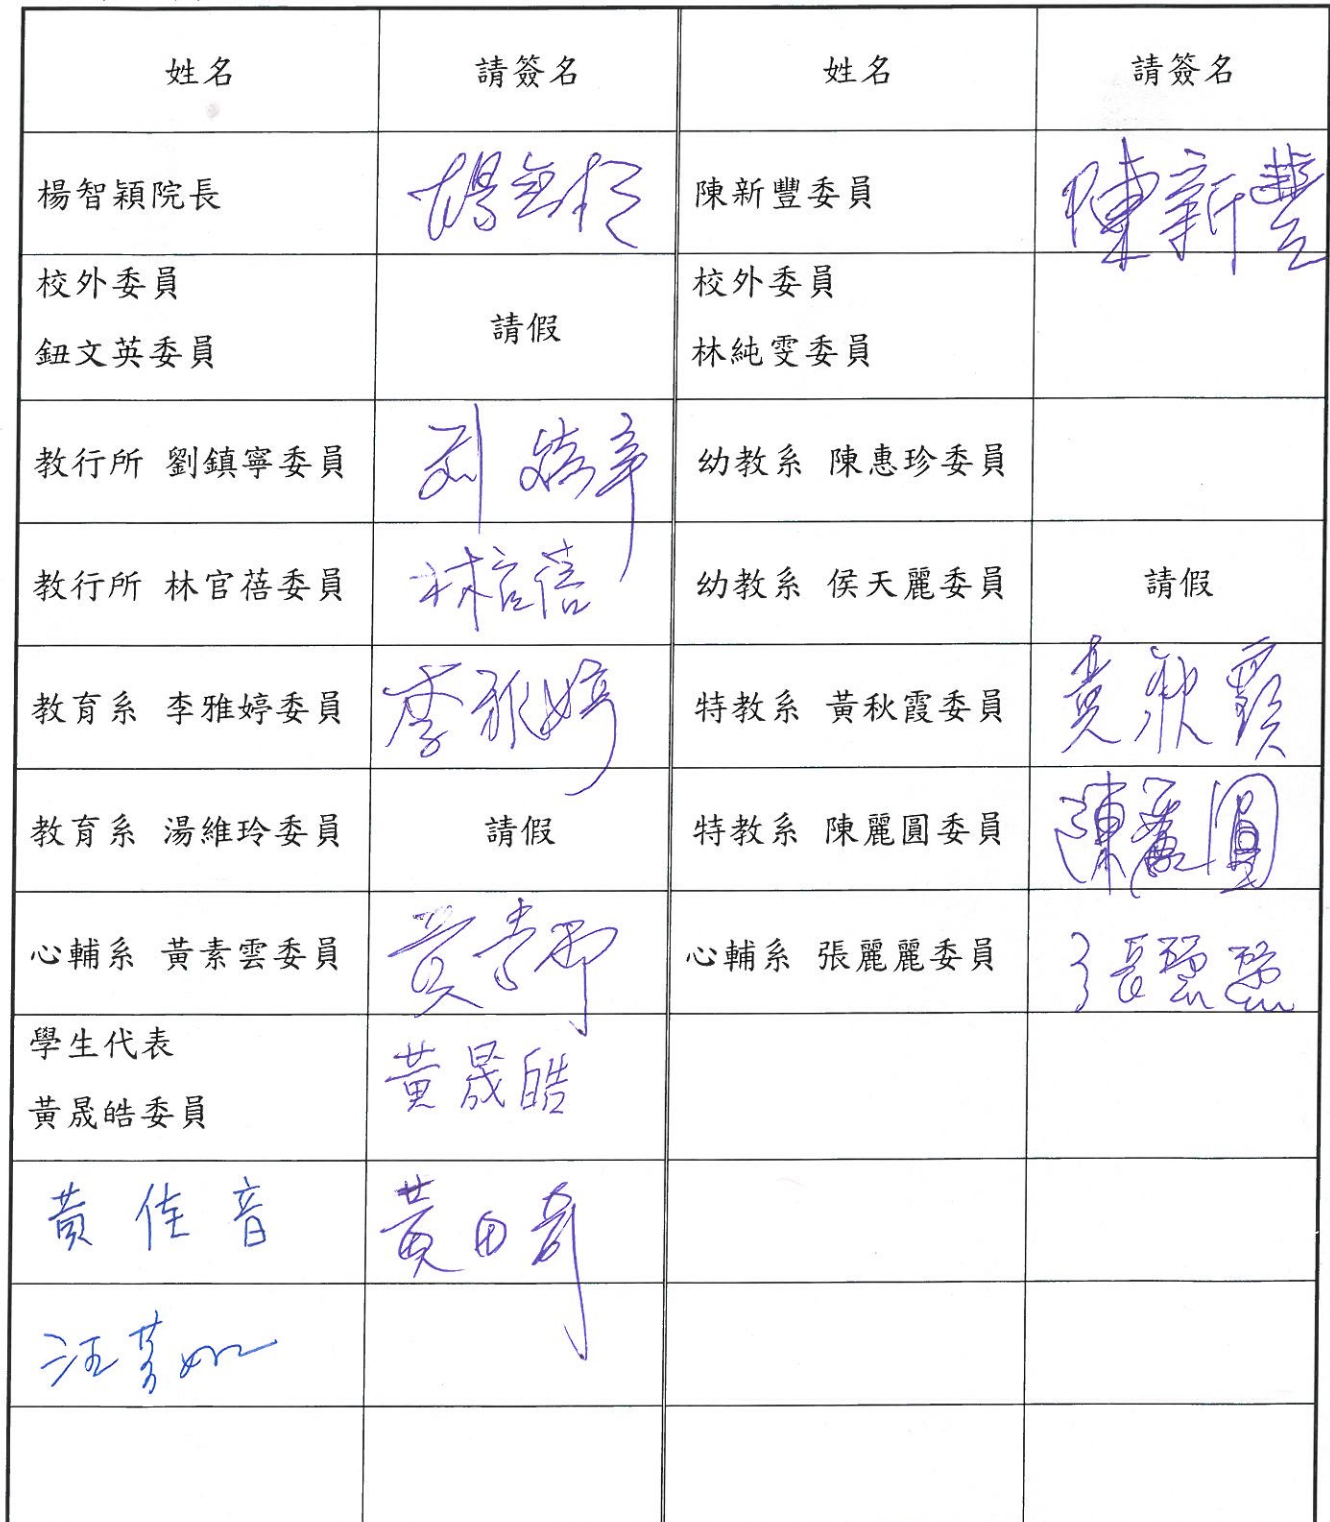 姓名 請簽名 姓名 請簽名
楊智穎院長 楊智穎 陳新豐委員 陳新豐
校外委員 校外委員
鈕文英委員 請假 林純雯委員
教行所 劉鎮寧委員 劉鎮寧 幼教系 陳惠珍委員
教行所 林官蓓委員 林官蓓 幼教系 侯天麗委員 請假
教育系 李雅婷委員 李雅婷 特教系 黃秋霞委員 黃秋霞
教育系 湯維玲委員 請假 特教系 陳麗圓委員 陳麗圓
心輔系 黃素雲委員 黃素雲 心輔系 張麗麗委員 張麗麗
學生代表
黃晟皓委員 黃晟皓
黃佳音 黃田奇